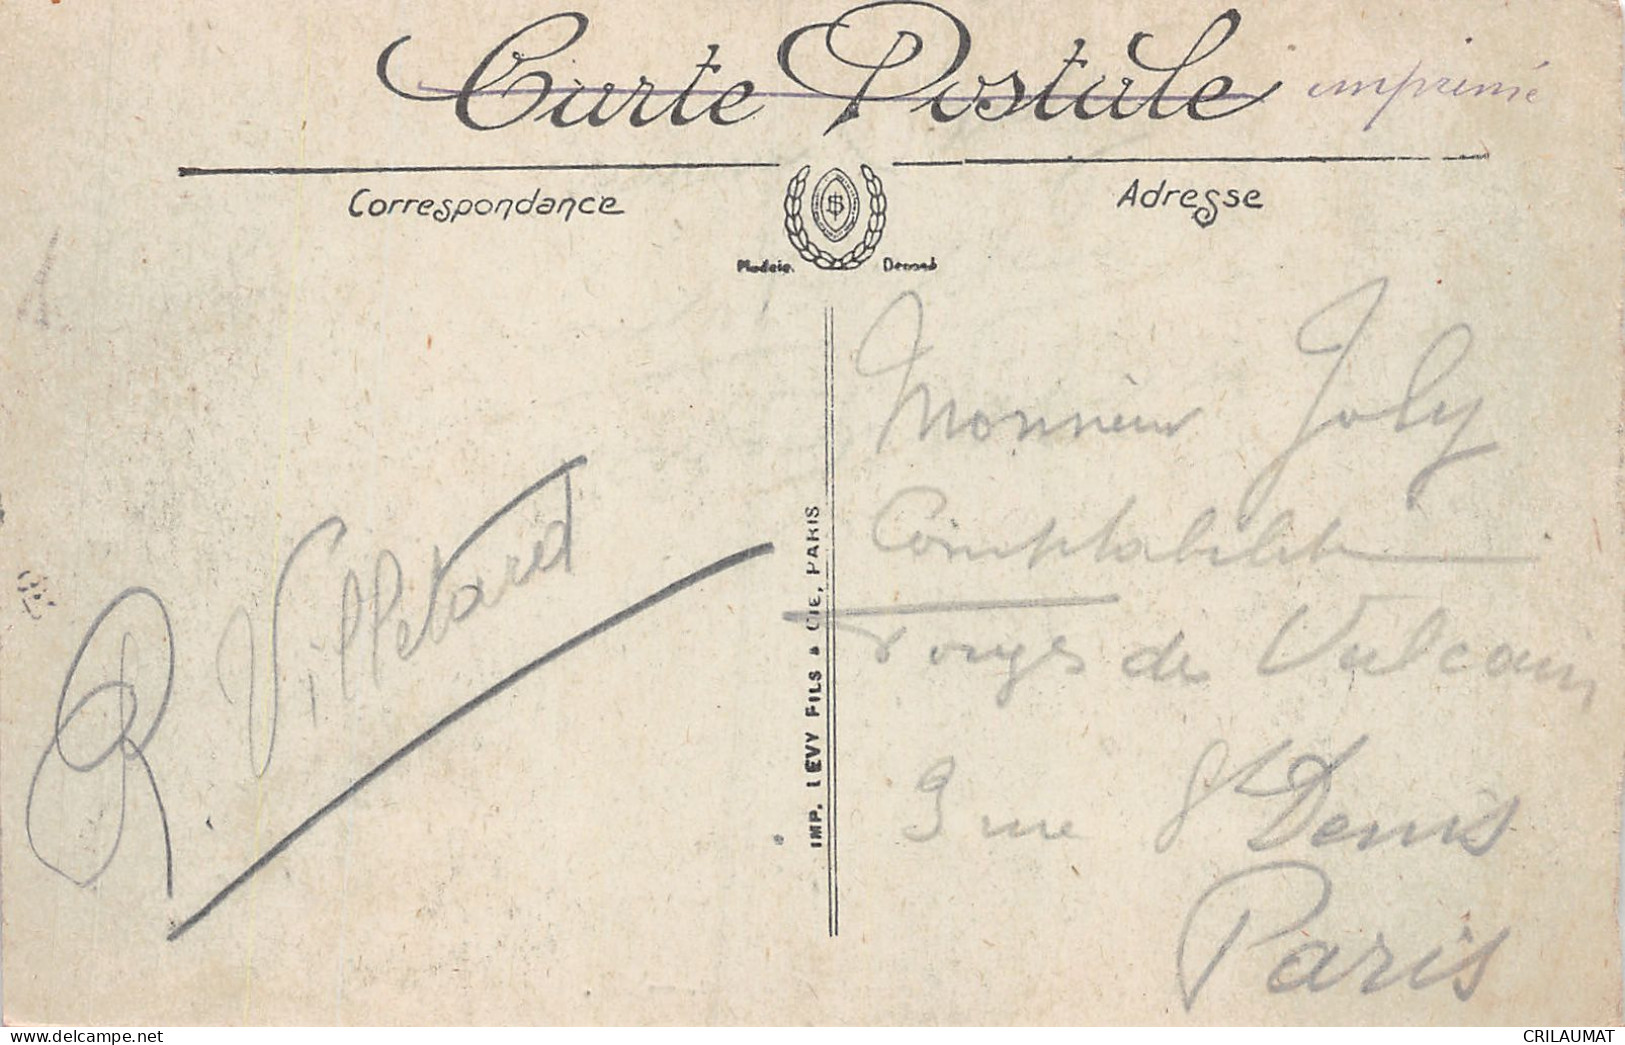 Carte Postale imprimé
Correspondance
Adresse
Modèle Déposé
Monsieur Joly
Comptabilité
Forges de Vulcain
3 rue St Denis
Paris
R. Villetard
IMP. LEVY FILS & CIE, PARIS
delcampe.net
CRILAUMAT